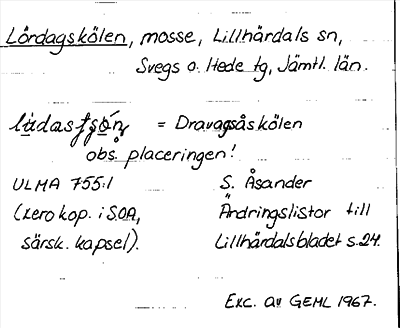 Lördagskölen, mosse, Lillhärdals sn,
Svegs o. Hede tg, Jämtl. län.
= Dravagsåskölen
obs. placeringen!
ULMA 755:1 S. Åsander
(xerokop. i SOA, Ändringslistor till
särsk. kapsel). Lillhärdalsbladet s. 24.
Exc. av GEHL 1967.